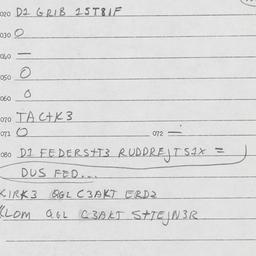 020 D1 GRIB 15T81F
030 O
040 —
050 O
060 O
070 TACTK3
071 O 072 —
080 D1 FEDERSTT3 RUDDREJTS1X =
DUS FED...
KIRK3 QGL C3AKT ERD2
KLOM QGL C3AKT STTEJN3R